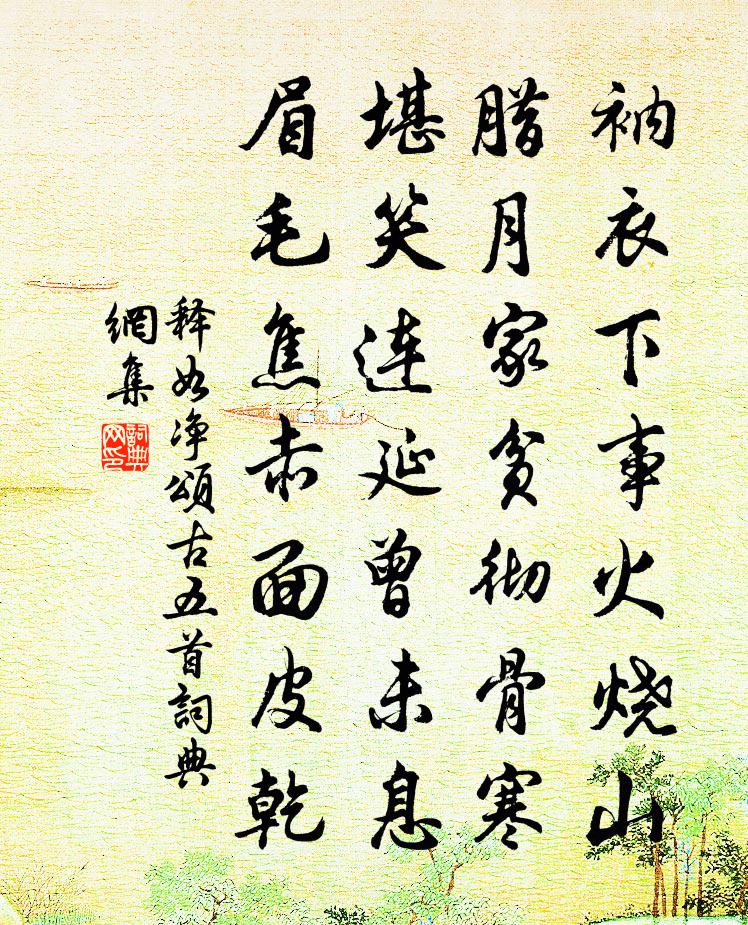 衲衣下事火烧山
腊月家贫彻骨寒
堪笑连延曾未息
眉毛焦赤面皮乾
释如净颂古五首詞典
網集
詞典
网印